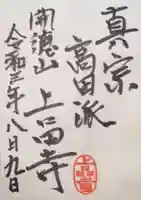 真宗
高田派
開徳山 上品寺
令和三年八月九日